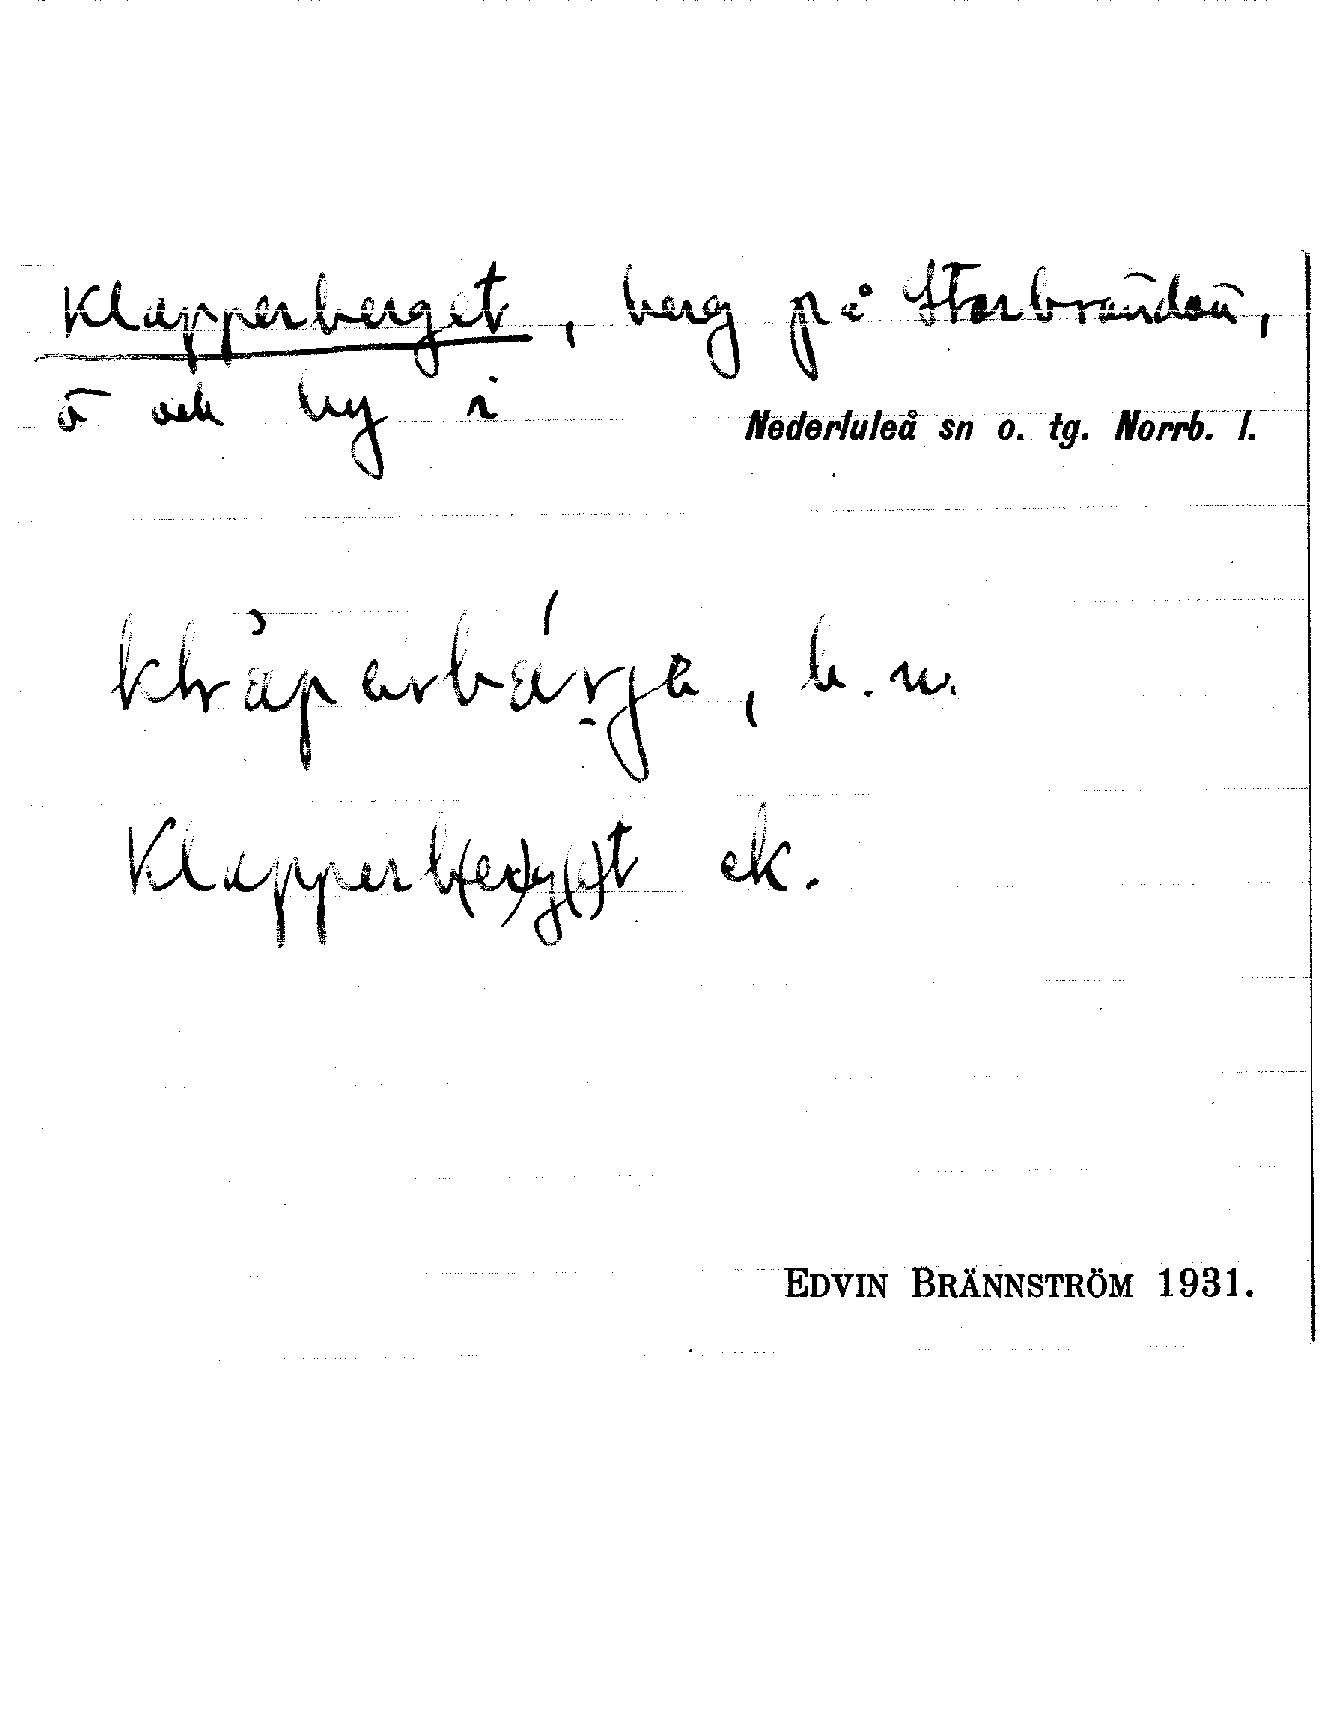 Klapperberget, berg på Storbrändön,
ö och by i
Nederluleå sn o. tg. Norrb. l.
b. n.
Klapperb(er)g(e)t ek.
EDVIN BRÄNNSTRÖM 1931.